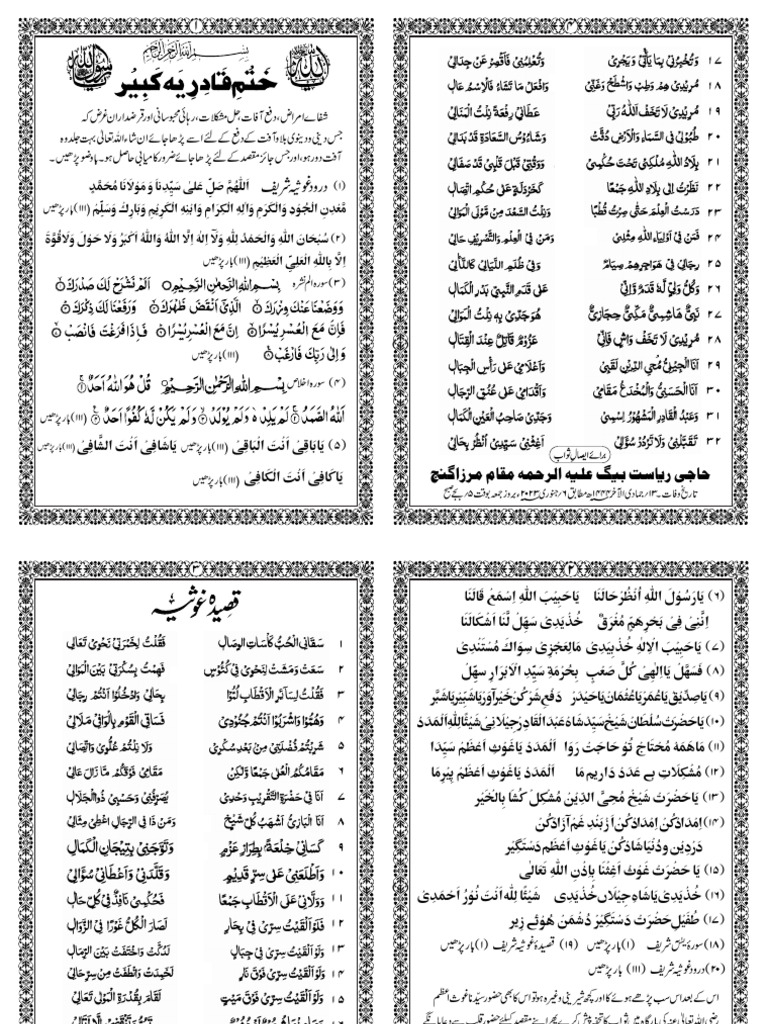 ۱
بِسْمِ اللهِ الرَّحْمٰنِ الرَّحِيْمِ
خَتْمِ قَادِرِیَہ کَبِیْر
شفائے امراض، دفع آفات، حل مشکلات، رہائی محبوسانی اور قرضداران غرض کہ
جس دینی و دنیوی بلا و آفت کے دفع کے لئے اسے پڑھا جائے ان شاء اللہ تعالیٰ بہت جلد وہ
آفت دور ہو، اور جس جائز مقصد کے لئے پڑھا جائے ضرور کامیابی حاصل ہو۔ باوضو پڑھیں۔
(۱) درود غوثیہ شریف اَللّٰهُمَّ صَلِّ عَلٰى سَيِّدِنَا وَ مَوْلَانَا مُحَمَّدٍ
مَّعْدِنِ الْجُوْدِ وَالْكَرَمِ وَاٰلِهِ الْكِرَامِ وَابْنِهِ الْكَرِيْمِ وَبَارِكْ وَسَلِّمْ (۱۱۱) بار پڑھیں
(۲) سُبْحَانَ اللّٰهِ وَالْحَمْدُ لِلّٰهِ وَلَآ اِلٰهَ اِلَّا اللّٰهُ وَاللّٰهُ اَكْبَرُ وَلَا حَوْلَ وَلَا قُوَّةَ
اِلَّا بِاللّٰهِ الْعَلِيِّ الْعَظِيْمِ (۱۱۱) بار پڑھیں
(۳) سورہ الم نشرح بِسْمِ اللّٰهِ الرَّحْمٰنِ الرَّحِيْمِ اَلَمْ نَشْرَحْ لَكَ صَدْرَكَ
وَوَضَعْنَا عَنْكَ وِزْرَكَ الَّذِيْٓ اَنْقَضَ ظَهْرَكَ وَرَفَعْنَا لَكَ ذِكْرَكَ
فَاِنَّ مَعَ الْعُسْرِ يُسْرًا اِنَّ مَعَ الْعُسْرِ يُسْرًا فَاِذَا فَرَغْتَ فَانْصَبْ
وَاِلٰى رَبِّكَ فَارْغَبْ (۱۱۱) بار پڑھیں
(۴) سورہ اخلاص بِسْمِ اللّٰهِ الرَّحْمٰنِ الرَّحِيْمِ قُلْ هُوَ اللّٰهُ اَحَدٌ
اَللّٰهُ الصَّمَدُ لَمْ يَلِدْ وَلَمْ يُوْلَدْ وَلَمْ يَكُنْ لَّهٗ كُفُوًا اَحَدٌ (۱۱۱) بار پڑھیں
(۵) يَا بَاقِيْ اَنْتَ الْبَاقِيْ (۱۱۱) بار پڑھیں يَا شَافِيْ اَنْتَ الشَّافِيْ (۱۱۱) بار پڑھیں
يَا كَافِيْ اَنْتَ الْكَافِيْ (۱۱۱) بار پڑھیں
۲
(۶) يَا رَسُوْلَ اللّٰهِ اُنْظُرْ حَالَنَا يَا حَبِيْبَ اللّٰهِ اِسْمَعْ قَالَنَا
اِنَّنِيْ فِيْ بَحْرِ هَمٍّ مُّغْرَقٌ خُذْ يَدِيْ سَهِّلْ لَّنَا اَشْكَالَنَا
(۷) يَا حَبِيْبَ الْاِلٰهِ خُذْ بِيَدِيْ مَالِعَجْزِيْ سِوَاكَ مُسْتَنَدِيْ
(۸) فَسَهِّلْ يَا اِلٰهِيْ كُلَّ صَعْبٍ بِحُرْمَةِ سَيِّدِ الْاَبْرَارِ سَهِّلْ
(۹) يَا صِدِّيْق يَا عُمَر يَا عُثْمَان يَا حَيْدَر دفع شر کن خیر آور یا شبیر یا شبر
(۱۰) یا حضرت سلطان شیخ سید شاہ عبد القادر جیلانی شیئا للہ المدد
(۱۱) ما همه محتاج تو حاجت روا المدد یا غوث اعظم سیدا
(۱۲) مشکلات بے عدد داریم ما المدد یا غوث اعظم پیر ما
(۱۳) یا حضرت شیخ محی الدین مشکل کشا بالخیر
(۱۴) امداد کن امداد کن از بند غم آزاد کن
در دین و دنیا شاد کن یا غوث اعظم دستگیر
(۱۵) یا حضرت غوث اغثنا باذن اللہ تعالٰی
(۱۶) خذ یدی یا شاہ جیلاں خذ یدی شیئا للہ انت نور احمدی
(۱۷) طفیل حضرت دستگیر دشمن ہوئے زیر
(۱۸) سورۃ یٰسٓ شریف (۱) بار پڑھیں (۱۹) قصیدۂ غوثیہ شریف (۱) بار پڑھیں
(۲۰) درود غوثیہ شریف (۱۱۱) بار پڑھیں
اس کے بعد اس سب پڑھے ہوئے کا اور کچھ شیرینی وغیرہ ہو تو اس کا بھی حضور سیدنا غوث اعظم
۳
قصیدہ غوثیہ
۱ سَقَانِي الْحُبُّ كَأْسَاتِ الْوِصَالِ فَقُلْتُ لِخَمْرَتِيْ نَحْوِيْ تَعَالِيْ
۲ سَعَتْ وَمَشَتْ لِنَحْوِيْ فِيْ كُئُوْسٍ فَهِمْتُ بِسُكْرَتِيْ بَيْنَ الْمَوَالِيْ
۳ فَقُلْتُ لِسَآئِرِ الْاَقْطَابِ لُمُّوْا بِحَالِيْ وَادْخُلُوْا اَنْتُمْ رِجَالِيْ
۴ وَهُمُّوْا وَاشْرَبُوْا اَنْتُمْ جُنُوْدِيْ فَسَاقِي الْقَوْمِ بِالْوَافِيْ مَلَالِيْ
۵ شَرِبْتُمْ فُضْلَتِيْ مِنْ بَعْدِ سُكْرِيْ وَلَا نِلْتُمْ عُلُوِّيْ وَاتِّصَالِيْ
۶ مَقَامُكُمُ الْعُلٰى جَمْعًا وَّلٰكِنْ مَقَامِيْ فَوْقَكُمْ مَا زَالَ عَالِيْ
۷ اَنَا فِيْ حَضْرَةِ التَّقْرِيْبِ وَحْدِيْ يُصَرِّفُنِيْ وَحَسْبِيْ ذُو الْجَلَالِ
۸ اَنَا الْبَازِيُّ اَشْهَبُ كُلِّ شَيْخٍ وَمَنْ ذَا فِي الرِّجَالِ اُعْطِيْ مِثَالِيْ
۹ كَسَانِيْ خِلْعَةً بِطِرَازِ عَزْمٍ وَتَوَّجَنِيْ بِتِيْجَانِ الْكَمَالِ
۱۰ وَاَطْلَعَنِيْ عَلٰى سِرٍّ قَدِيْمٍ وَقَلَّدَنِيْ وَاَعْطَانِيْ سُؤَالِيْ
۱۱ وَوَلَّانِيْ عَلَى الْاَقْطَابِ جَمْعًا فَحُكْمِيْ نَافِذٌ فِيْ كُلِّ حَالٍ
۱۲ فَلَوْ اَلْقَيْتُ سِرِّيْ فِيْ بِحَارٍ لَصَارَ الْكُلُّ غَوْرًا فِي الزَّوَالِ
۱۳ وَلَوْ اَلْقَيْتُ سِرِّيْ فِيْ جِبَالٍ لَدُكَّتْ وَاخْتَفَتْ بَيْنَ الرِّمَالِ
۱۴ وَلَوْ اَلْقَيْتُ سِرِّيْ فَوْقَ نَارٍ لَخَمِدَتْ وَانْطَفَتْ مِنْ سِرِّ حَالِيْ
۱۵ وَلَوْ اَلْقَيْتُ سِرِّيْ فَوْقَ مَيْتٍ لَقَامَ بِقُدْرَةِ الْمَوْلٰى تَعَالِيْ
۴
۱۷ وَتُخْبِرُنِيْ بِمَا يَأْتِيْ وَيَجْرِيْ وَتُعْلِمُنِيْ فَاَقْصِرْ عَنْ جِدَالِيْ
۱۸ مُرِيْدِيْ هِمْ وَطِبْ وَاشْطَحْ وَغَنِّيْ وَافْعَلْ مَا تَشَاءُ فَالْاِسْمُ عَالٍ
۱۹ مُرِيْدِيْ لَا تَخَفْ اَللّٰهُ رَبِّيْ عَطَانِيْ رِفْعَةً نِلْتُ الْمَنَالِيْ
۲۰ طُبُوْلِيْ فِي السَّمَاءِ وَالْاَرْضِ دُقَّتْ وَشَاءُوْسُ السَّعَادَةِ قَدْ بَدَالِيْ
۲۱ بِلَادُ اللّٰهِ مُلْكِيْ تَحْتَ حُكْمِيْ وَوَقْتِيْ قَبْلَ قَلْبِيْ قَدْ صَفَالِيْ
۲۲ نَظَرْتُ اِلٰى بِلَادِ اللّٰهِ جَمْعًا كَخَرْدَلَةٍ عَلٰى حُكْمِ اتِّصَالِ
۲۳ دَرَسْتُ الْعِلْمَ حَتّٰى صِرْتُ قُطْبًا وَنِلْتُ السَّعْدَ مِنْ مَّوْلَى الْمَوَالِيْ
۲۴ فَمَنْ فِيْ اَوْلِيَاءِ اللّٰهِ مِثْلِيْ وَمَنْ فِي الْعِلْمِ وَالتَّصْرِيْفِ حَالِيْ
۲۵ رِجَالِيْ فِيْ هَوَاجِرِهِمْ صِيَامٌ وَفِيْ ظُلَمِ اللَّيَالِيْ كَاللَّاٰلِيْ
۲۶ وَكُلُّ وَلِيٍّ لَهٗ قَدَمٌ وَّاِنِّيْ عَلٰى قَدَمِ النَّبِيْ بَدْرِ الْكَمَالِ
۲۷ نَبِيٌّ هَاشِمِيٌّ مَكِّيٌّ حِجَازِيٌّ هُوَ جَدِّيْ بِهٖ نِلْتُ الْمَوَالِيْ
۲۸ مُرِيْدِيْ لَا تَخَفْ وَاشٍ فَاِنِّيْ عَزُوْمٌ قَاتِلٌ عِنْدَ الْقِتَالِ
۲۹ اَنَا الْجِيْلِيُّ مُحْيِ الدِّيْنِ لَقَبِيْ وَاَعْلَامِيْ عَلٰى رَأْسِ الْجِبَالِ
۳۰ اَنَا الْحَسَنِيُّ وَالْمُخْدَعْ مَقَامِيْ وَاَقْدَامِيْ عَلٰى عُنُقِ الرِّجَالِ
۳۱ وَعَبْدُ الْقَادِرِ الْمَشْهُوْرُ اِسْمِيْ وَجَدِّيْ صَاحِبُ الْعَيْنِ الْكَمَالِ
۳۲ تَقَبَّلْنِيْ وَلَا تَرْدُدْ سُؤَالِيْ اَغِثْنِيْ سَيِّدِيْ اُنْظُرْ بِحَالِيْ
برائے ایصال ثواب
حاجی ریاست بیگ علیہ الرحمہ مقام مرزا گنج
تاریخ وفات ۔ ۱۳؍ جمادی الآخر ۱۴۴۴ھ مطابق ۶؍ جنوری ۲۰۲۳ء، بروز جمعہ بوقت ۵؍ بجے صبح